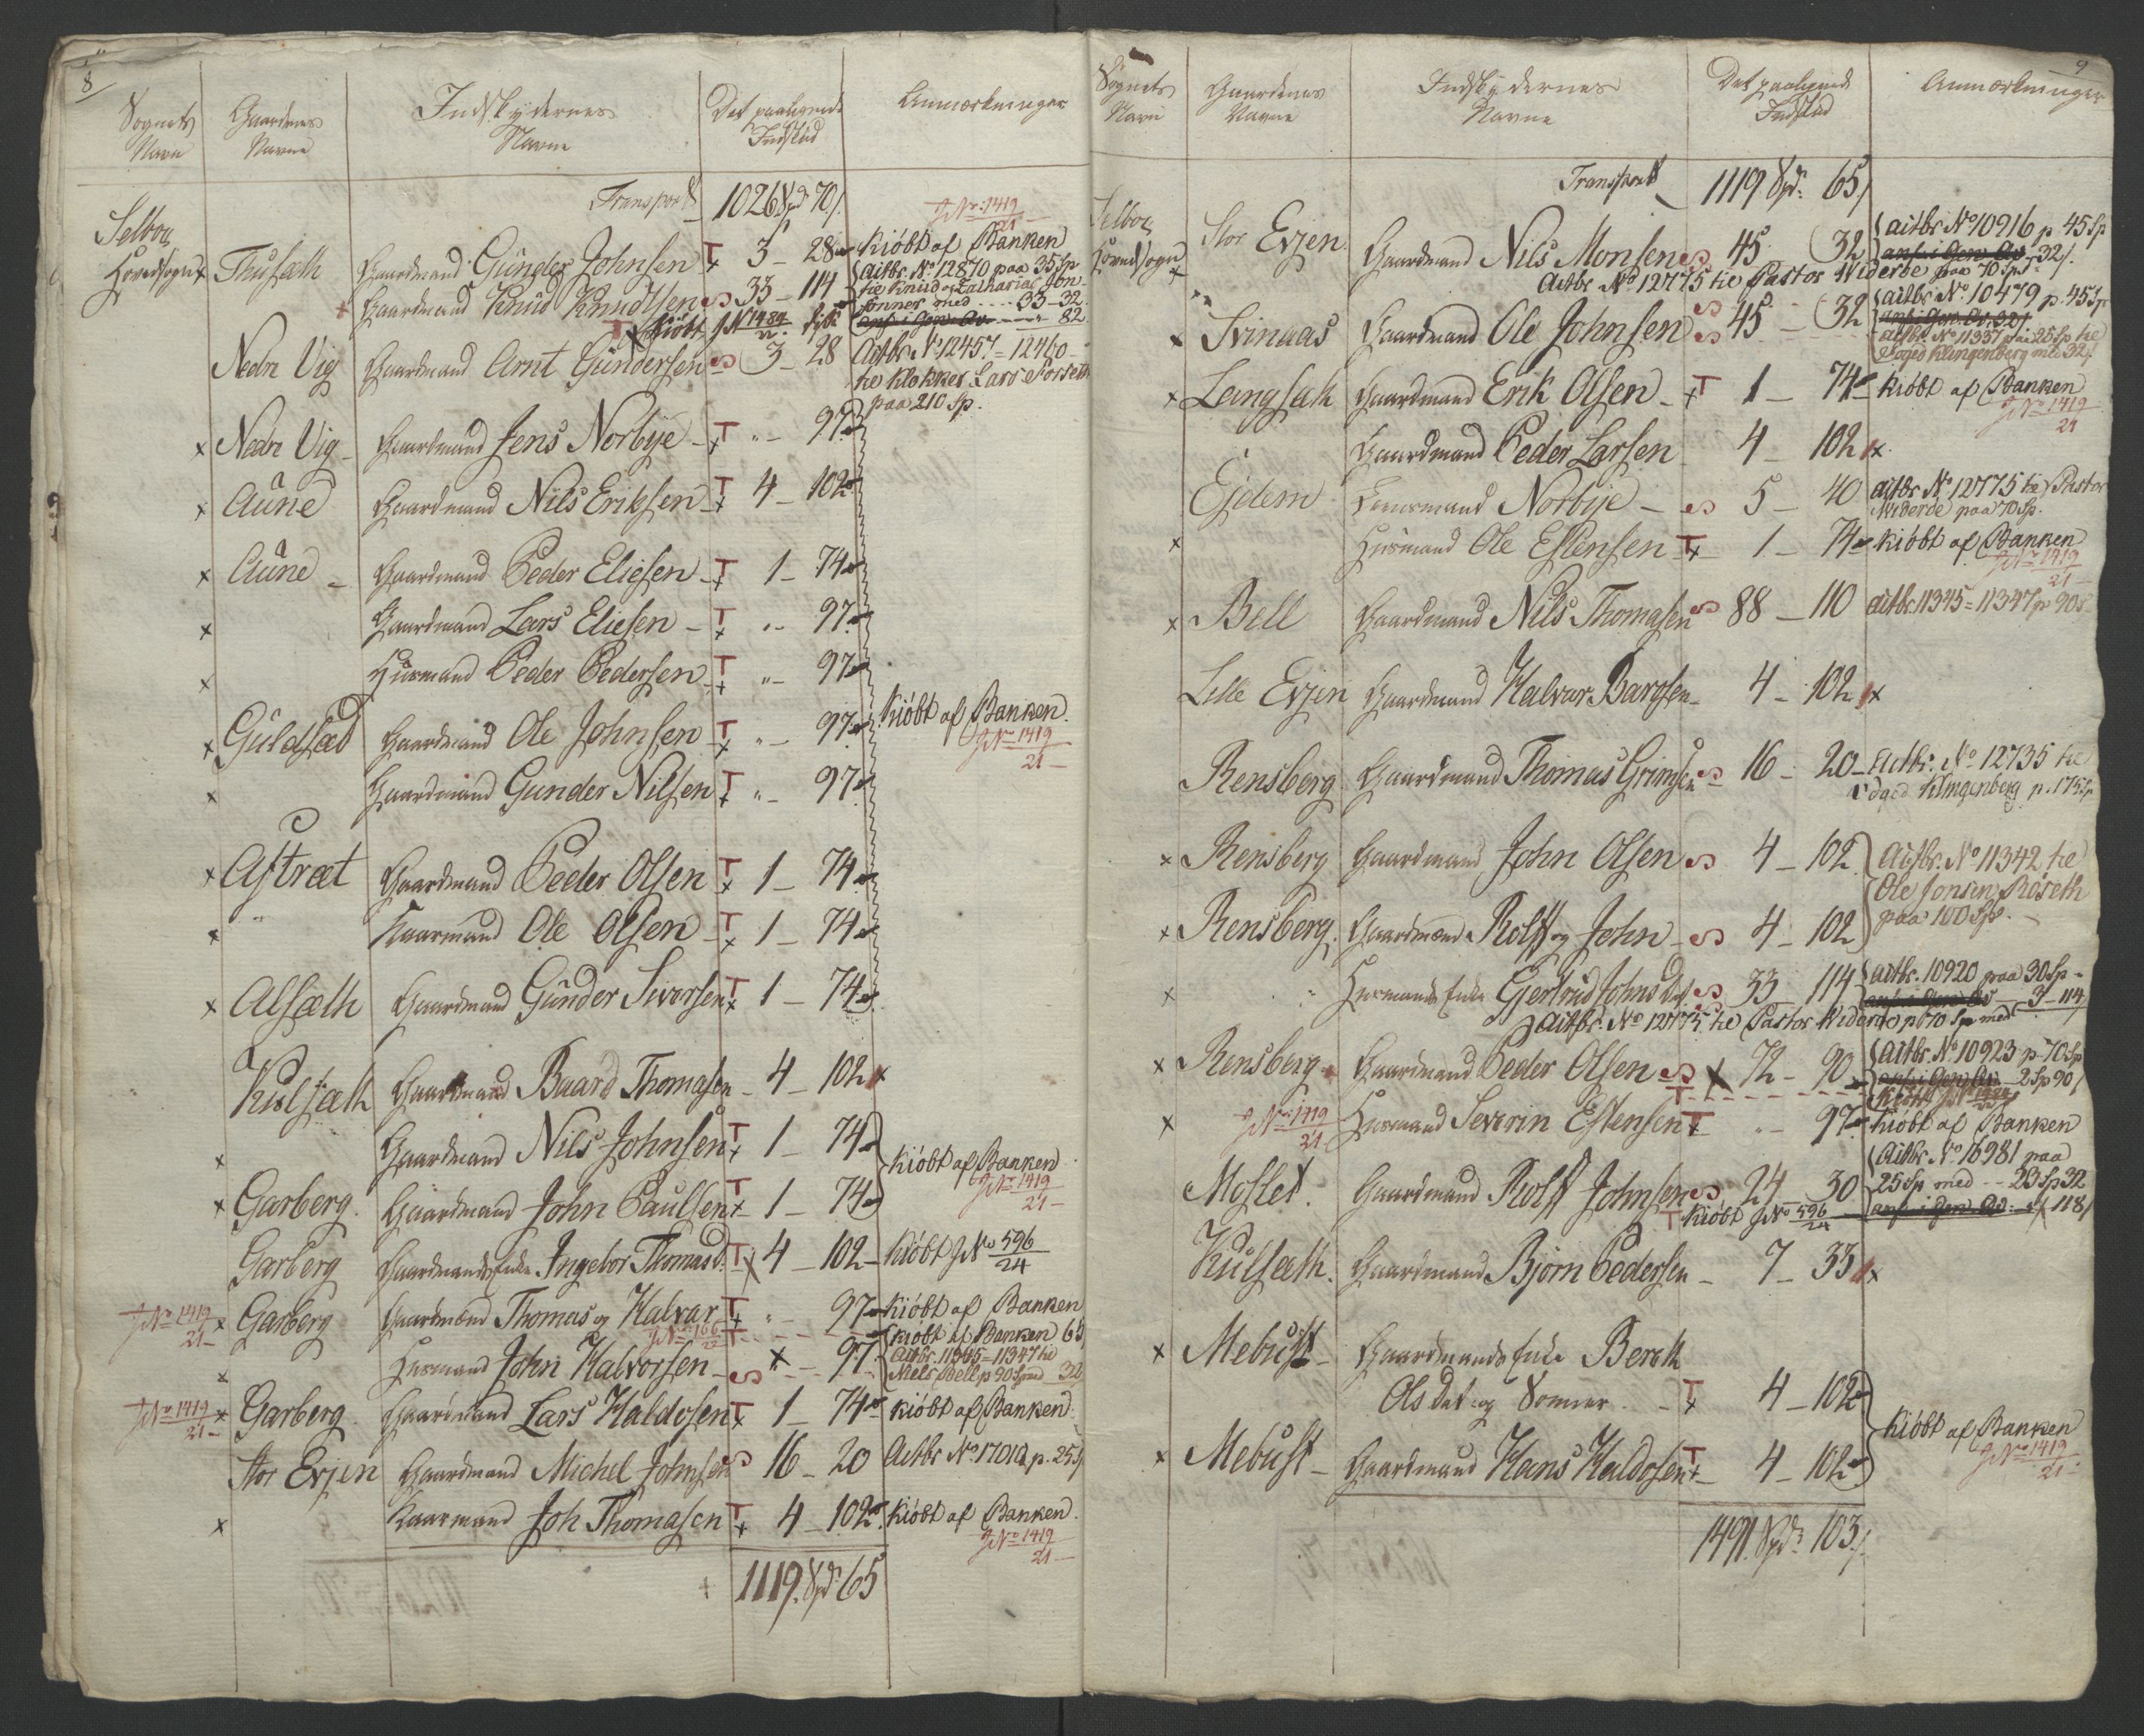 8
Sognets Navn
Gaardenes Navne
Indskydernes Navne
Det paaligende Indskud
Anmærkninger
Transport 1026 Spd 70/
JNo 1419/21
Selboe Hovedsogn
x Thusæth Gaardmand Gunder Johnsen T x 3 - 28 Kiöbt af Banken
Gaardmand Knud Knudtsen S 33 - 114 Actbr. No 12870 paa 35 Sp
til Knud og Zacharias Jon-
sønner med 33-32.
ansf i Gen. Av. 82.
Kiöbt JNo 1484/22
Nedre Vig Gaardmand Arnt Gundersen S 3 - 28 Actbr. No 12457 = 12460
til Klokker Lars Morseth
paa 210 Sp.
x Nedre Vig - Gaardmand Jens Norbye - T x " - 97
x Aune Gaardmand Nils Eriksen T x 4 - 102
x Aune - Gaardmand Peder Eliesen T x 1 - 74
x Gaardmand Lars Eliesen - T x " - 97
x Husmand Peder Pedersen T x " - 97
x Guldsæd Gaardmand Ole Johnsen T x " - 97 Kiöbt af Banken.
JNo 1419/21
x Gaardmand Gunder Nilsen T x " - 97
x Astræt Gaardmand Peder Olsen T x 1 - 74
x " Kaarmand Ole Olsen T x 1 - 74
x Alsæth Gaardmand Gunder Siversen T x 1 - 74
Kulsæth Gaardmand Baard Thomasen - 4 - 102 x
x Gaardmand Nils Johnsen T x 1 - 74
Kiöbt af Banken
JNo 1419/21
x Garberg. Gaardmand John Paulsen T x 1 - 74
Garberg Gaardmands Enke Ingebor Thomasd. T x 4 - 102 - Kiöbt JNo 596/24
JNo 1419/21 x Garberg Gaardmænd Thomas og Halvar T x " - 97 Kiöbt af Banken
JNo 166/22 T Kiöbt af Banken 65
x Husmand John Halvorsen - S x - 97 Actbr. 11345 = 11347 til
Niels Bell p 90 Sp med 32
JNo 1419/21 x Garberg Gaardmand Lars Haldosen T x 1 - 74 Kiöbt af Banken.
Stor Evjen Gaardmand Michel Johnsen S 16 - 20 Actbr No 17010 p. 25 S/
x Kaarmand Joh Thomasen T x 4 - 102 Kiöbt af Banken.
JNo 1419/21
1119. Spd 65
9
Sognets Navn
Gaardenes Navne
Indskydernes Navne
Det paaligende Indskud
Anmærkninger
Transport 1119 Spd: 65/
Selboe Hovedsogn
x Stor Evjen Gaardmand Nils Monsen S 45 - 32 Actbr No 10916 p 45 Sp
ansf i Gen Av 32/.
Actbr No 12775 til Pastor Widerøe paa 70 Sp.
x Svinaas Gaardmand Ole Johnsen S 45 - 32 Actbr. No 10479 p. 45 Sp
ansf i Gen. Av. 32/
Actbr. No 11357 paa 25 Sp til
Foged Klingenberg med 32/.
x Langsæth Gaardmand Erik Olsen - x T 1 - 74 Kiöbt af Banken
JNo 1419/21
Gaardmand Peder Larsen 4 - 102 x
Ejdem Lensmand Norbye - S 5 - 40 Actbr No 12775 til Pastor
Widerøe paa 70 Sp.
x Husmand Ole Estensen T x 1 - 74 Kiöbt af Banken
JNo 1419/21
x Bell Gaardmand Nils Thomasen S 88 - 110 Actbr. 11345 = 11347 p 90 S
Lille Evjen Gaardmand Halvar Bargsen - 4 - 102 x
Rensberg Gaardmand Thomas Grimsen S 16 - 20 - Actbr. No 12735 til
Foged Klingenberg p. 175 Sp
x Rensberg Gaardmand John Olsen S 4 - 102 Actbr. No 11342 til
Ole Jonsen Röseth
paa 100 Sp.
x Rensberg. Gaardmænd Rolf og John - S 4 - 102
x " Husmands Enke Gjertrud Johnsdat. S 33 - 114 Actbr. 10920 paa 30 Sp -
ansf i Gen Av 3 - 114/
Actbr. No 12775 til Pastor Widerøe p 70 Sp med
x Rensberg Gaardmand Peder Olsen S x 72 - 90 Actbr. No 10923 p 70 Sp
ansf i Gen Av. 2 Sp 90/
T Kiöbt JNo 1484/22
x JNo 1419/21 Husmand Severin Estensen T x " - 97 Kiöbt af Banken
Moslet. Gaardmand Rolf Johnsen S 24 - 30 Actbr. No 16981 paa
25 Sp med -- 23 Sp 32
T Kiöbt JNo 596/24 ansf i Gen. Av. 118/
Kulsæth. Gaardmand Bjørn Pedersen - 7 - 33 x
x Mebust - Gaardmands Enke Bereth
Olsdat. og Sønner. - T x 4 - 102
Kiöbt af Banken
JNo 1419/21
x Mebust - Gaardmand Hans Haldosen T x 4 - 102
1491. Spd: 103/.